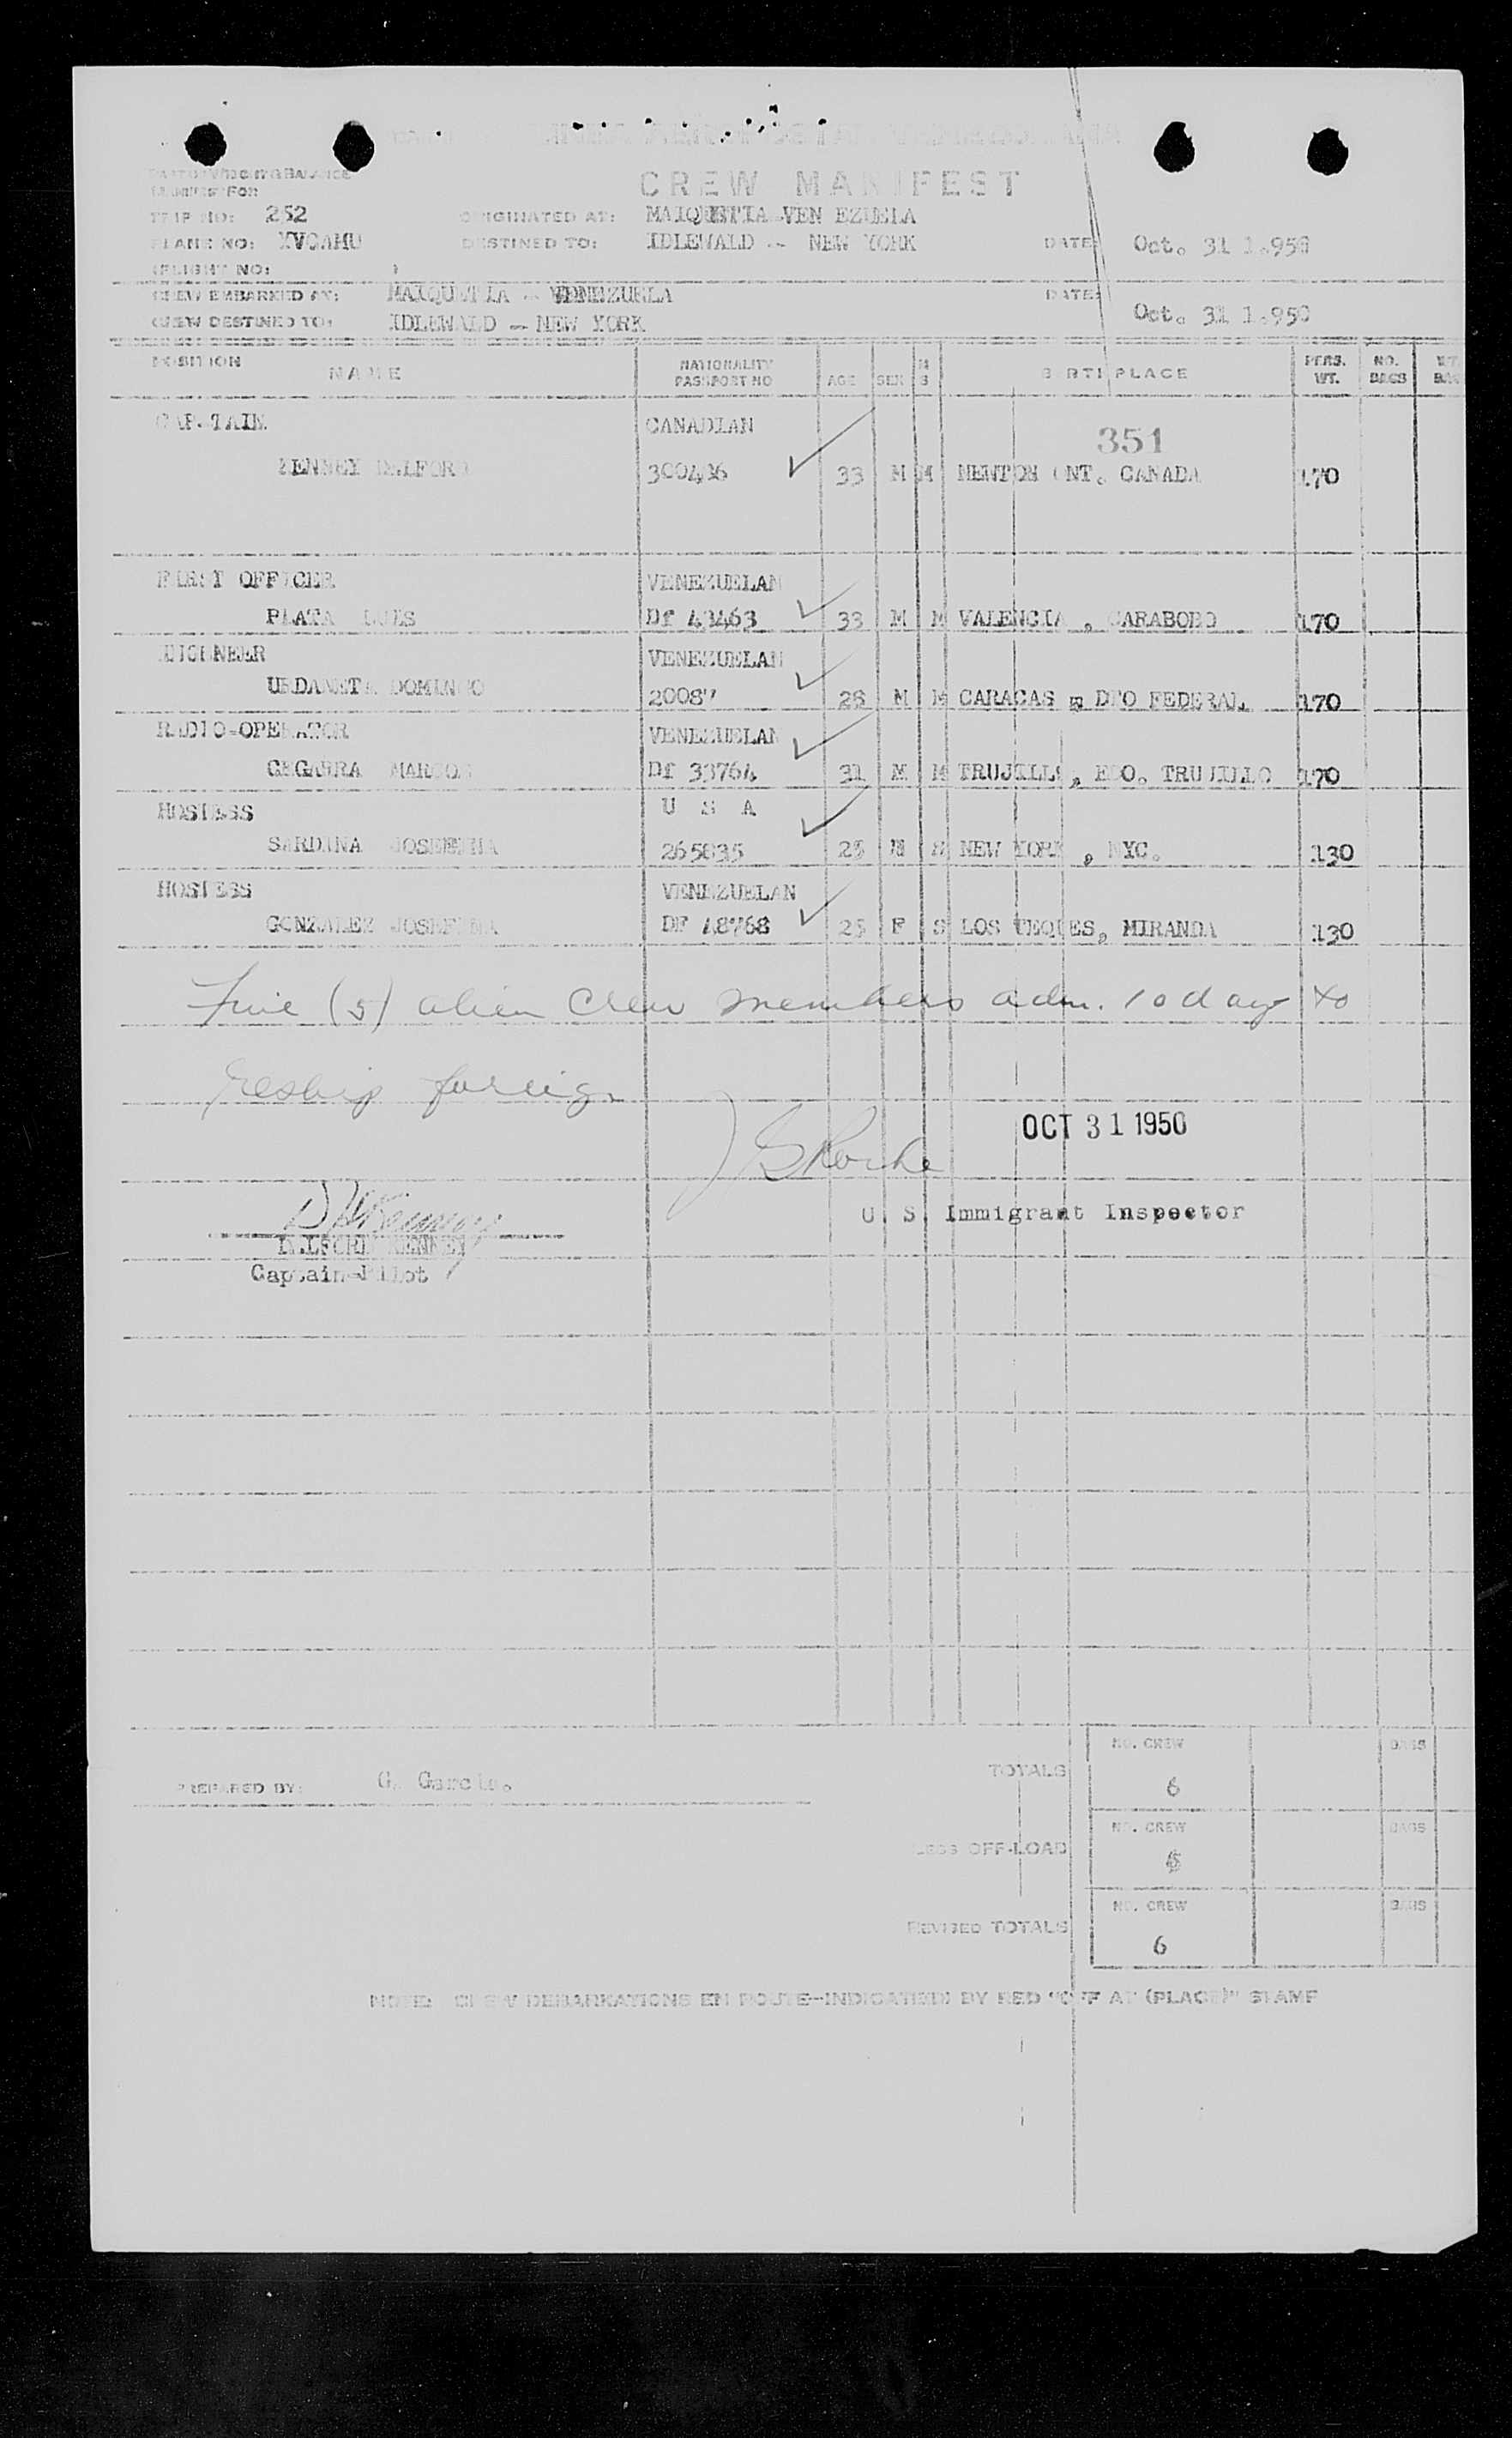 CREW MANIFEST
MANIFEST FOR
TRIP NO: 252 ORIGINATED AT: MAIQUETIA-VEN EZUELA
PLANE NO: YVCAMU DESTINED TO: IDLEWALD -- NEW YORK DATE: Oct. 31 1.950
FLIGHT NO:
CREW EMBARKED AT: MAIQUETIA -- VENEZUELA DATE:
CREW DESTINED TO: IDLEWALD -- NEW YORK Oct. 31 1.950
POSITION NAME NATIONALITY PASSPORT NO AGE SEX M S BIRTHPLACE PERS. WT. NO. BAGS WT BAG
CAPTAIN CANADIAN 351
KENNEY DELFORD 300436 33 M M NEWTON ONT. CANADA 170
FIRST OFFICER VENEZUELAN
PLATA LUIS Df 43463 33 M M VALENCIA , CARABOBO 170
ENGINEER VENEZUELAN
URDANETA DOMINGO 20087 28 M M CARACAS DTO FEDERAL 170
RADIO-OPERATOR VENEZUELAN
CEGARRA MARCOS Df 33764 31 M M TRUJILLO, EDO. TRUJILLO 170
HOSTESS U S A
SARDINA JOSEFINA 265835 25 S NEW YORK , NYC. 130
HOSTESS VENEZUELAN
GONZALEZ JOSEFINA DF 48768 25 F S LOS TEQUES, MIRANDA 130
Five (5) alien crew members adm. 10 days to
reship foreign
OCT 31 1950
U. S. Immigrant Inspector
DELFORD KENNEY
Captain-Pilot
PREPARED BY: G. Garcia.
TOTALS NO. CREW 6 BAGS
LESS OFF-LOAD NO. CREW BAGS
REVISED TOTALS NO. CREW 6 BAGS
NOTE: CREW DEBARKATIONS EN ROUTE-INDICATED BY RED "OFF AT (PLACE)" STAMP